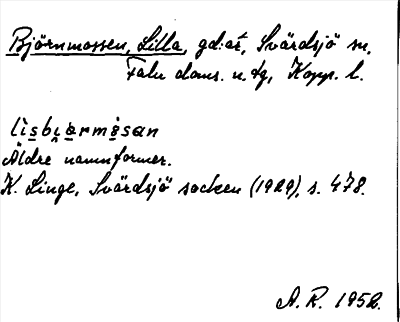 Björnmossen, Lilla, gd:ar, Svärdsjö sn,
Falu doms. n. tg, Kopp. l.
lisbiarmåsan
Äldre namnformer.
K. Linge, Svärdsjö socken (1929), s. 478.
A. R. 1952.